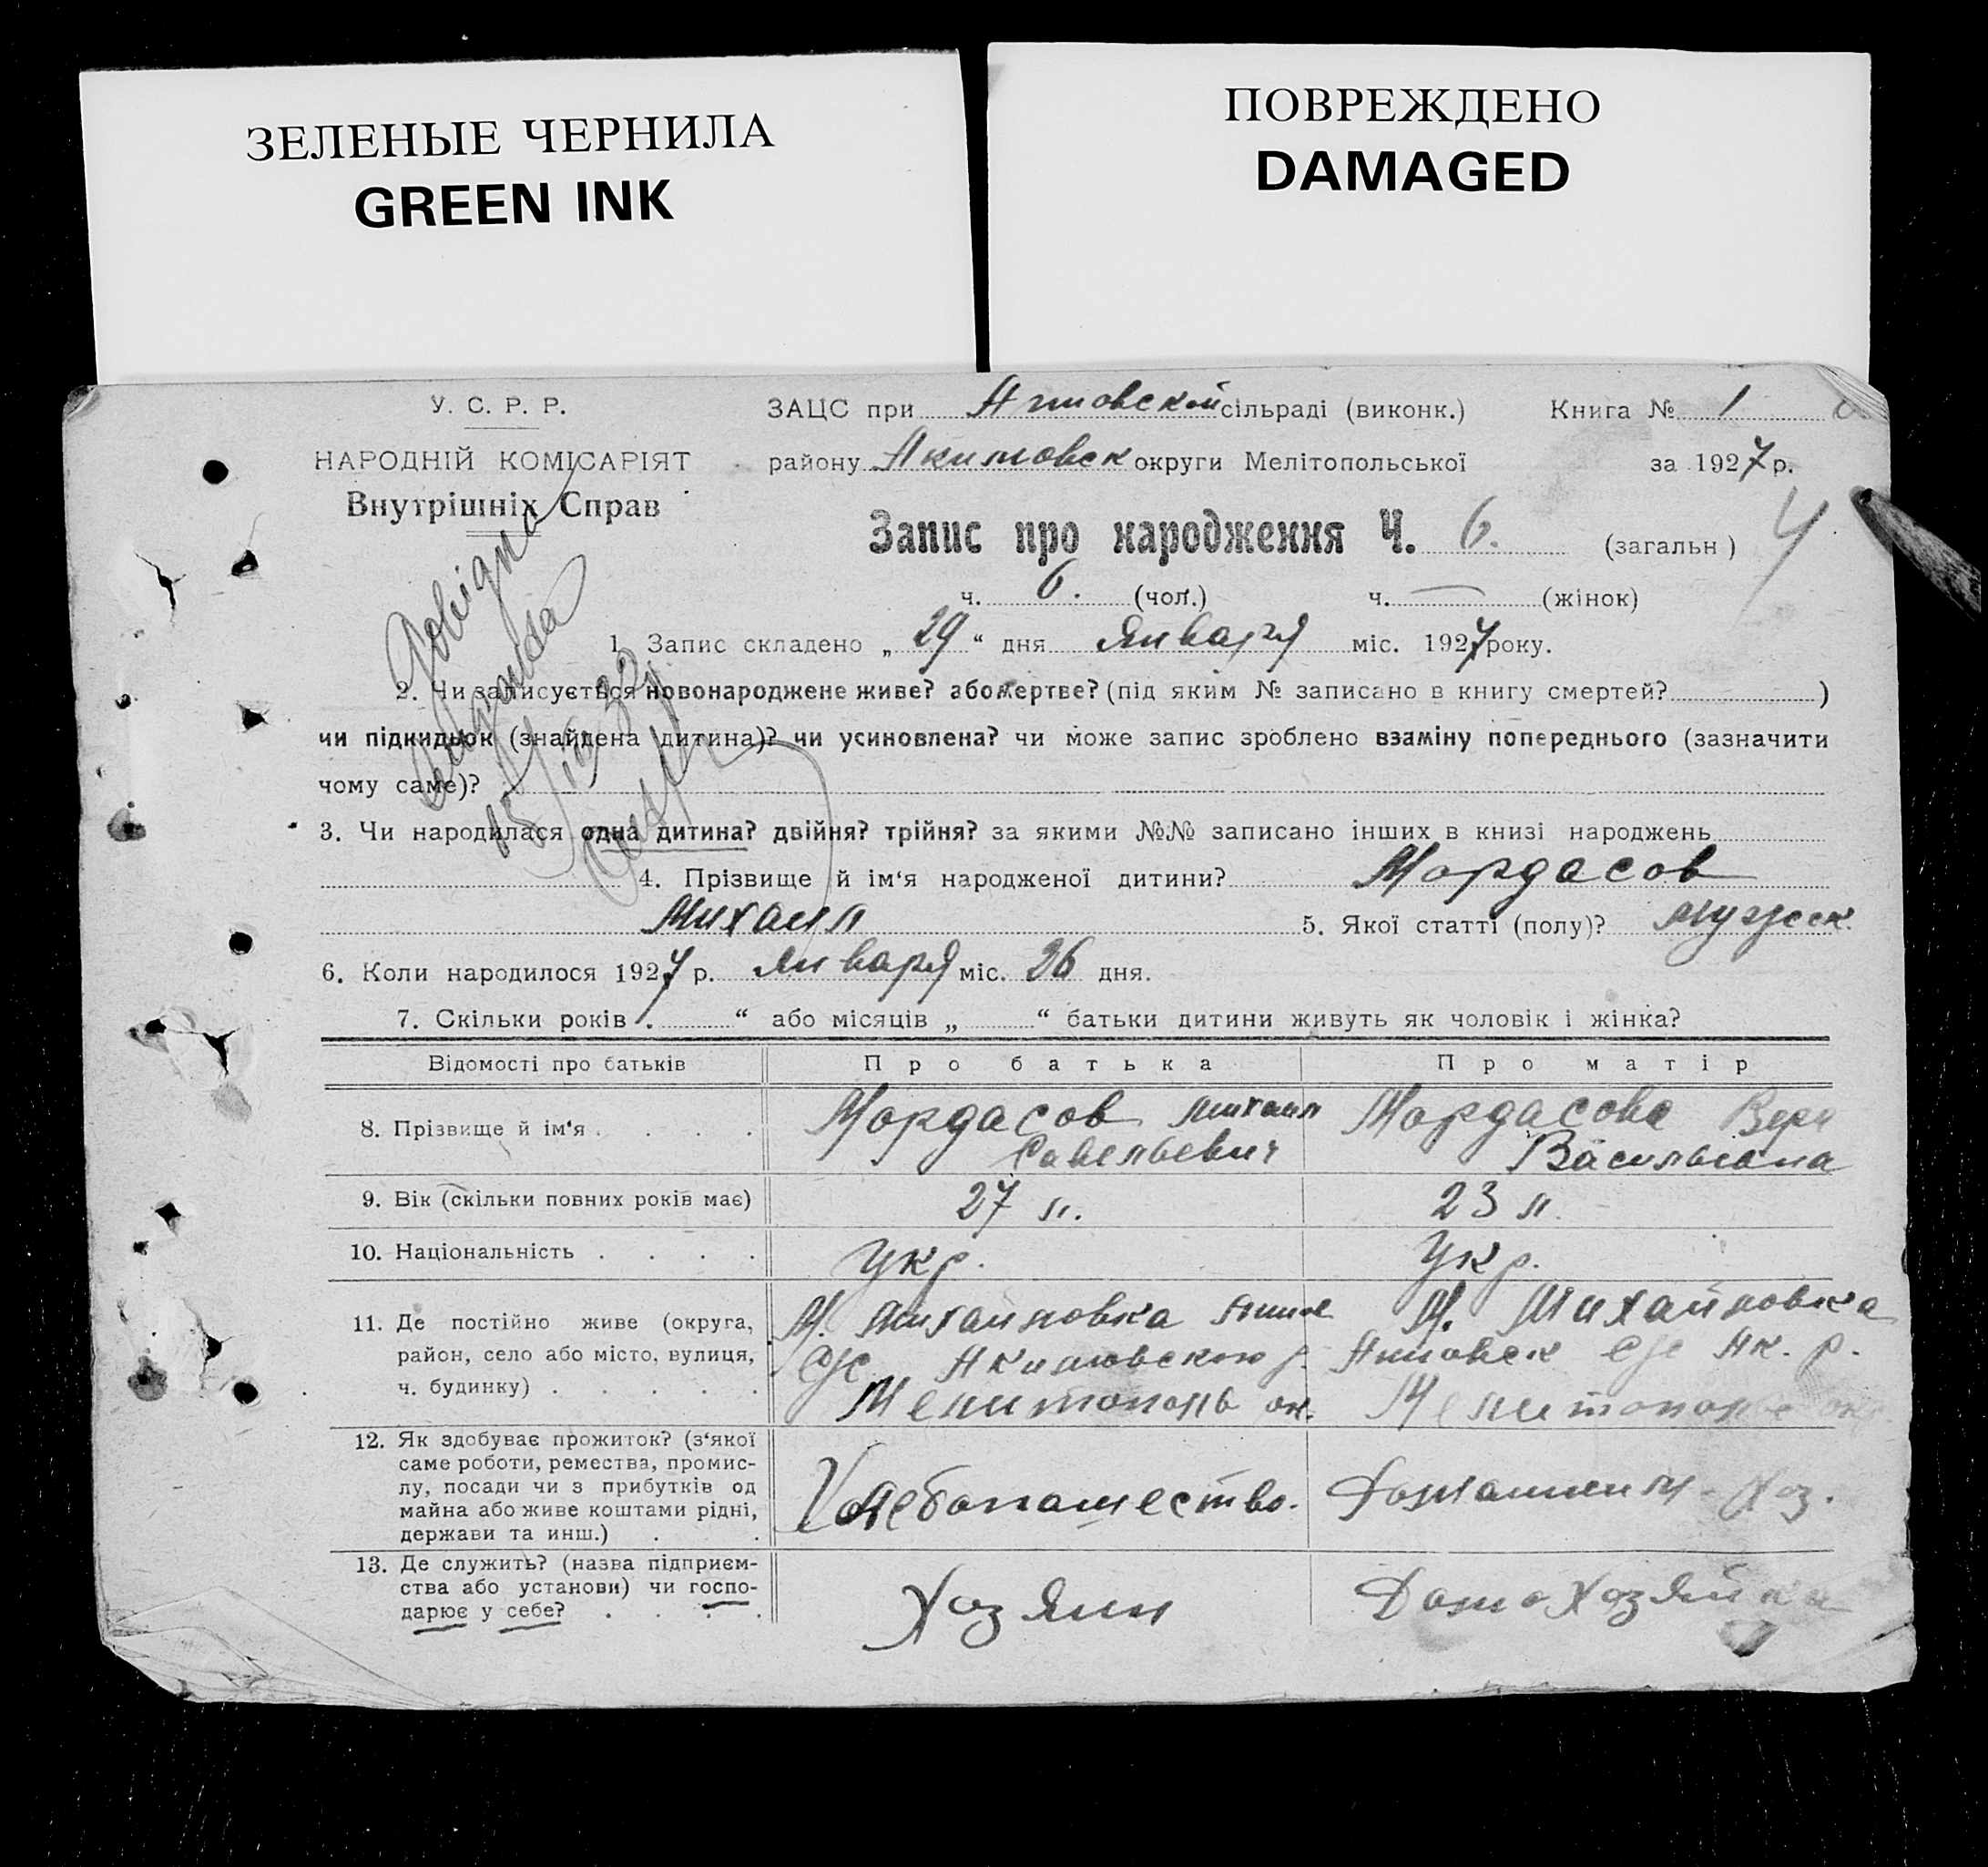 ЗЕЛЕНЫЕ ЧЕРНИЛА
GREEN INK
ПОВРЕЖДЕНО
DAMAGED
У. С. Р. Р.
НАРОДНІЙ КОМІСАРІЯТ
Внутрішніх Справ
ЗАЦС при сільраді (виконк.) Книга № 1
району Акимовск округи Мелітопольської за 1927 р.
Запис про народження Ч. 6. (загальн) 4
ч. 6. (чол.) ч. — (жінок)
Довідка
видана
1. Запис складено „29“ дня Января міс. 1927 року.
2. Чи записується новонароджене живе? або мертве? (під яким № записано в книгу смертей? )
чи підкидьок (знайдена дитина)? чи усиновлена? чи може запис зроблено взаміну попереднього (зазначити
чому саме)?
3. Чи народилася одна дитина? двійня? трійня? за якими №№ записано інших в книзі народжень
4. Прізвище й ім‘я народженої дитини? Мордасов
Михаил 5. Якої статті (полу)? мужеск.
6. Коли народилося 1927 р. Января міс. 26 дня.
7. Скільки років “ або місяців „ “ батьки дитини живуть як чоловік і жінка?
Відомості про батьків Про батька Про матір
8. Прізвище й ім‘я . . . . Мордасов Михаил Савельевич Мордасова Вера Васильевна
9. Вік (скільки повних років має) 27 л. 23 л.
10. Національність . . . . Укр. Укр.
11. Де постійно живе (округа,
район, село або місто, вулиця,
ч. будинку) . . . . .
М. Михайловка
с/с Акимовского р.
Мелитополь ок.
М. Михайловка
с/с Ак. р.
Мелитополь окр.
12. Як здобуває прожиток? (з‘якої
саме роботи, ремества, промис-
лу, посади чи з прибутків од
майна або живе коштами рідні,
держави та инш.) . .
Хлебопашество. Домашнем Хоз.
13. Де служить? (назва підприєм-
ства або установи) чи госпо-
дарює у себе? . . . .
Хозяин Домохозяйка